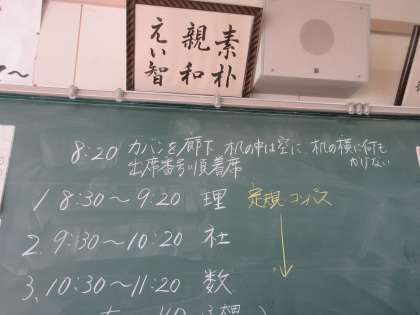 素朴
親和
えい智
8:20 カバンを廊下 机の中は空に 机の横に何も
かけない
出席番号順着席
1 8:30〜9:20 理 定規 コンパス
2. 9:30〜10:20 社
3、10:30〜11:20 数